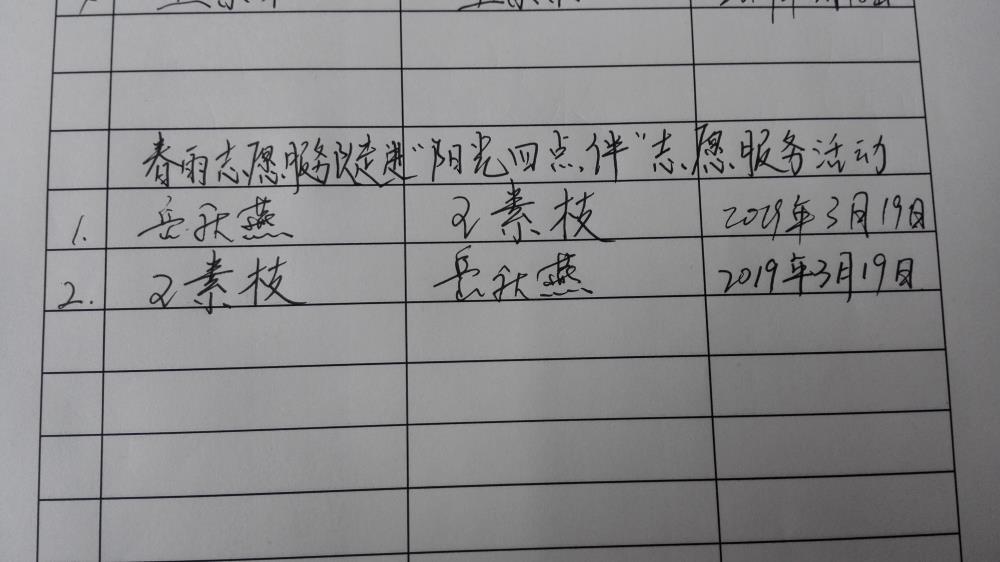 春雨志愿服务队走进“阳光四点伴”志愿服务活动
1. 岳秋燕 王素枝 2029年3月19日
2. 王素枝 岳秋燕 2019年3月19日